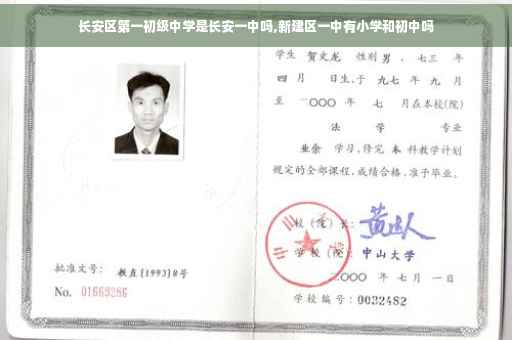 长安区第一初级中学是长安一中吗,新建区一中有小学和初中吗
学生 贺文龙 性别 男 、七三 年
四 月 日生,于 九七 年 九 月
至 二〇〇〇 年 七 月在本校(院)
法 学 专业
业余 学习,修完 本 科教学计划
规定的全部课程,成绩合格,准予毕业。
校(院)长:
学校(院): 中山大学
二〇〇〇 年 七 月 一 日
学校编号: 0032482
批准文号: 教直(1993)8号
No. 01669286